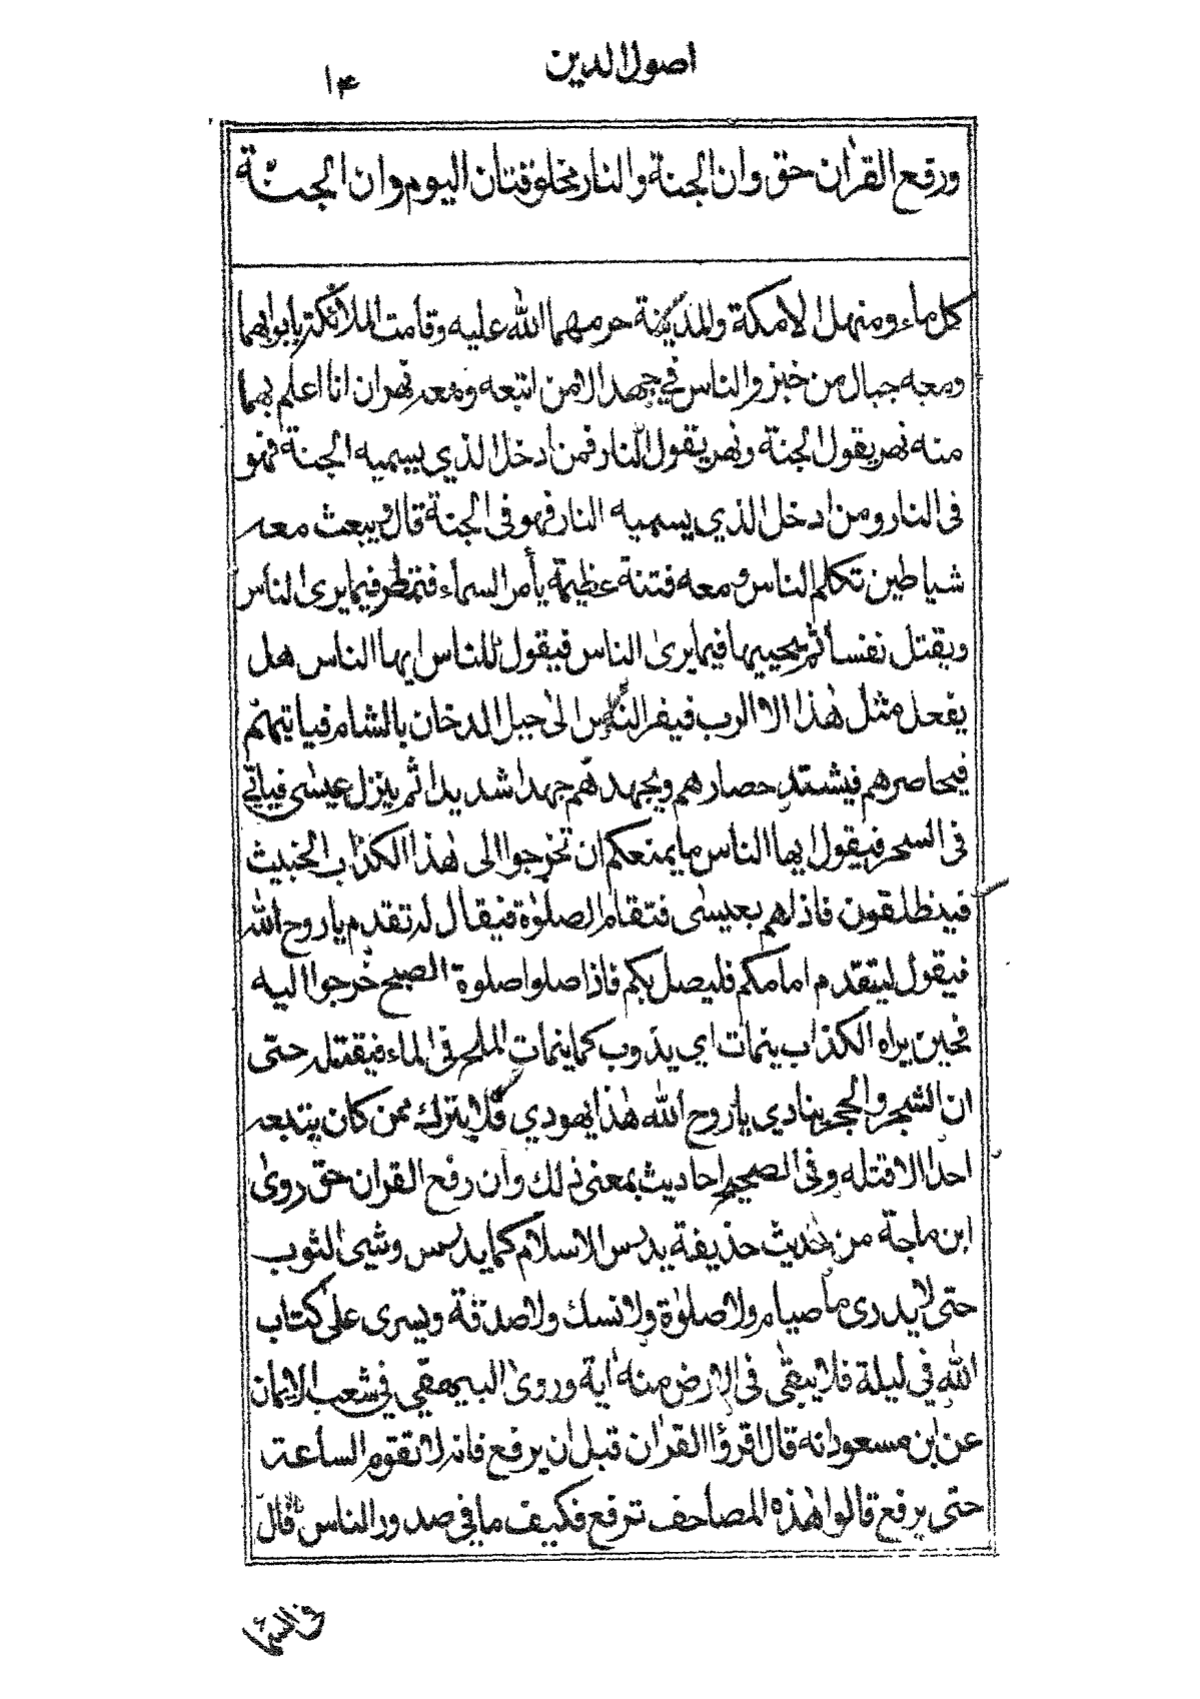 اصول الدين
١٤
ورفع القرآن حق وان الجنة والنار مخلوقتان اليوم وان الجنة
كل ماء ومنهل الا مكة والمدينة حرمهما الله عليه وقامت الملائكة بابوابهما
ومعه جبال من خبز والناس في جهد الا من اتبعه ومعه نهران انا اعلم بهما
منه نهر يقول الجنة ونهر يقول النار فمن ادخل الذي يسميه الجنة فهو
فى النار ومن ادخل الذي يسميه النار فهو فى الجنة قال ويبعث معه
شياطين تكلم الناس ومعه فتنة عظيمة يأمر السماء فتمطر فيما يرى الناس
ويقتل نفسا ثم يحييها فيما يرى الناس فيقول للناس ايها الناس هل
يفعل مثل هذا الا الرب فيفر الناس الى جبل الدخان بالشام فياتيهم
فيحاصرهم فيشتد حصارهم ويجهدهم جهدا شديدا ثم ينزل عيسى فياتي
فى السحر فيقول ايها الناس ما يمنعكم ان تخرجوا الى هذا الكذاب الخبيث
فينطلقون فاذا هم بعيسى فتقام الصلوة فيقال له تقدم يا روح الله
فيقول ليتقدم امامكم فليصل بكم فاذا صلوا صلوة الصبح خرجوا اليه
فحين يراه الكذاب ينمات اي يذوب كما ينمات الملح فى الماء فيقتله حتى
ان الشجر والحجر ينادي يا روح الله هذا يهودي فلا يترك ممن كان يتبعه
احدا الا قتله وفى الصحيح احاديث بمعنى ذلك وان رفع القرآن حق روى
ابن ماجة من حديث حذيفة يدرس الاسلام كما يدرس وشى الثوب
حتى لا يدرى ما صيام ولا صلوة ولا نسك ولا صدقة ويسرى على كتاب
الله في ليلة فلا يبقى فى الارض منه آية وروى البيهقي في شعب الايمان
عن ابن مسعود انه قال اقرؤا القرآن قبل ان يرفع فانه لا تقوم الساعة
حتى يرفع قالوا هذه المصاحف ترفع فكيف ما في صدور الناس قال